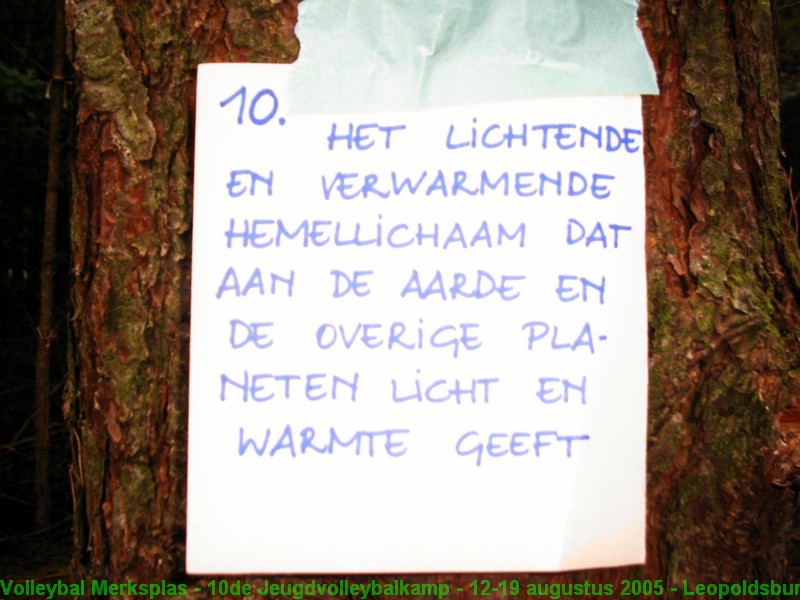 10.
HET LiCHTENDE
EN VERWARMENDE
HEMELLiCHAAM DAT
AAN DE AARDE EN
DE OVERiGE PLA-
NETEN LiCHT EN
WARMTE GEEFT
Volleybal Merksplas - 10de Jeugdvolleybalkamp - 12-19 augustus 2005 - Leopoldsbur